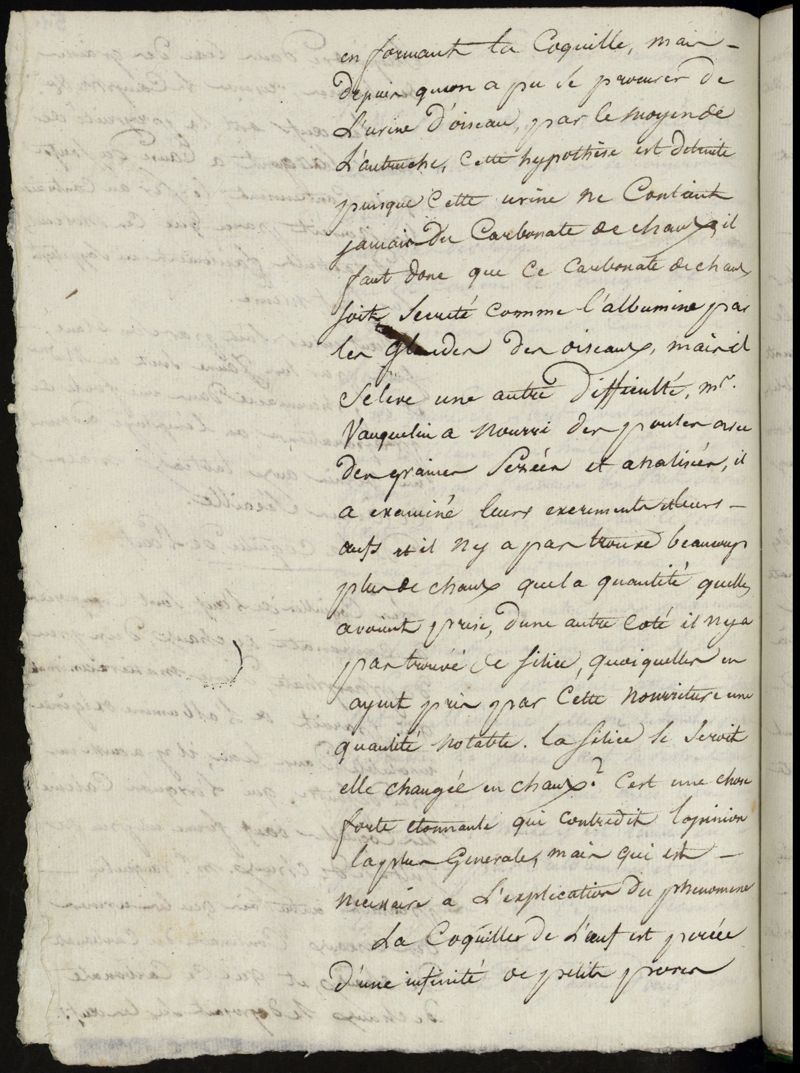 en formant la Coquille, mais –
depuis quon a pu se procurer de
L'urine d'oiseau, par le moyen de
L'autruche, Cette hypothèse est détruite
puisque Cette urine ne Contient
jamais du Carbonate de chaux, il
faut donc que ce Carbonate de chaux
soit Secreté comme l'albumine par
les glandes des oiseaux, mais il
Seleve une autre difficulté, mr.
Vauquelin a nourri des poules avec
des graines Pesées et analisées, il
a examiné leurs excrements et leurs –
œufs et il ny a pas trouvé beaucoup
plus de chaux que la quantité quelles
avoient prise, dune autre Coté il ny a
pas trouvé de Silice, quoiquelles en
ayent pris par Cette nourriture une
quantité notable. la Silice se Seroit
elle changée en chaux? C'est une chose
forte etonnante qui contredit lopinion
la plus Generale, mais qui est –
necessaire a L'explication du phenomene
La Coquilles de L'œuf est percée
d'une infinité de petits pores